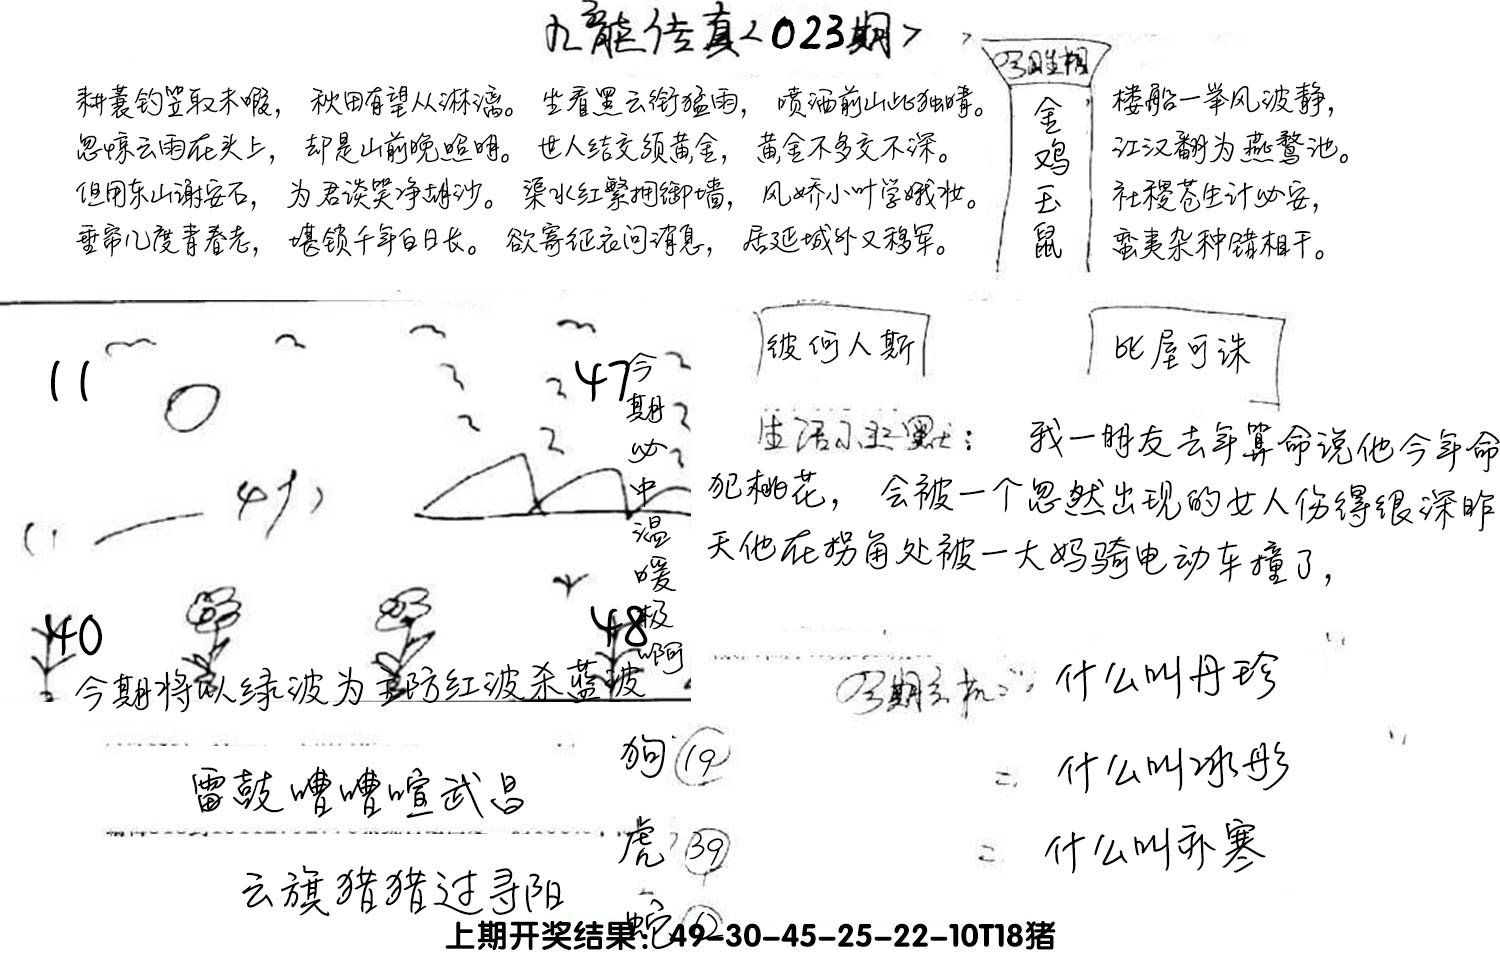 九龙传真<023期>
今期生相
金鸡玉鼠
耕蓑钓笠取未暇，秋田有望从淋漓。生看黑云衔猛雨，喷洒前山此独晴。
忽惊云雨在头上，却是山前晚照明。世人结交须黄金，黄金不多交不深。
但用东山谢安石，为君谈笑净胡沙。渠水红繁拥御墙，风娇小叶学娥妆。
垂帘几度青春老，堪锁千年白日长。欲寄征衣问消息，居延城外又移军。
楼船一举风波静，
江汉翻为燕鹜池。
社稷苍生计必安，
蛮夷杂种错相干。
11
47
今期必中温暖极啊
40
48
今期将以绿波为主防红波杀蓝波
彼何人斯
比屋可诛
生活幽默：我一朋友去年算命说他今年命
犯桃花，会被一个忽然出现的女人伤得很深昨
天他在拐角处被一大妈骑电动车撞了，
今期玄机：什么叫丹珍
二 什么叫冰彤
二 什么叫亦寒
雷鼓嘈嘈喧武昌
云旗猎猎过寻阳
狗 19
虎 39
蛇
上期开奖结果：49-30-45-25-22-10T18猪